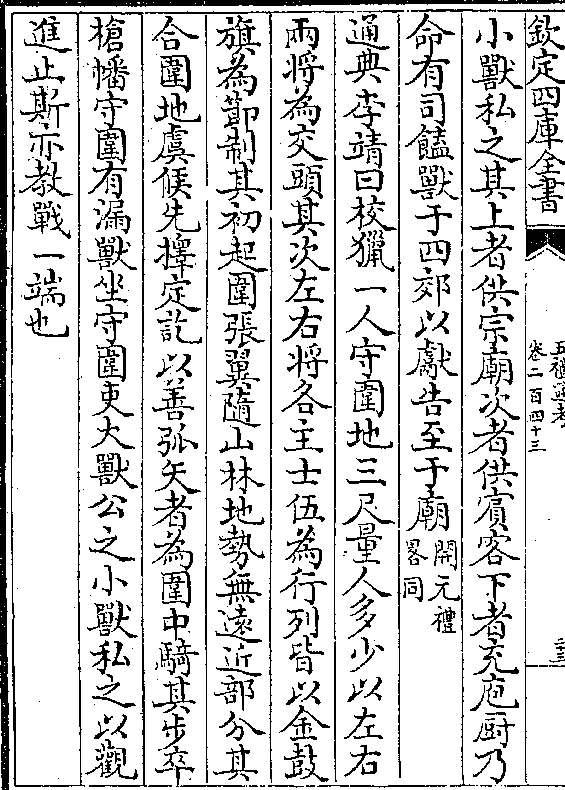 欽定四庫全書
五禮通考
卷二百四十三
小獸私之其上者供宗廟次者供賓客下者充庖厨乃
命有司饁獸于四郊以獻告至于廟開元禮畧同
通典李靖曰校獵一人守圍地三尺量人多少以左右
兩將為交頭其次左右將各主士伍為行列皆以金鼓
旗為節制其初起圍張翼隨山林地勢無遠近部分其
合圍地虞候先擇定訖以善弧矢者為圍中騎其步卒
槍幡守圍有漏獸坐守圍吏大獸公之小獸私之以觀
進止斯亦教戰一端也